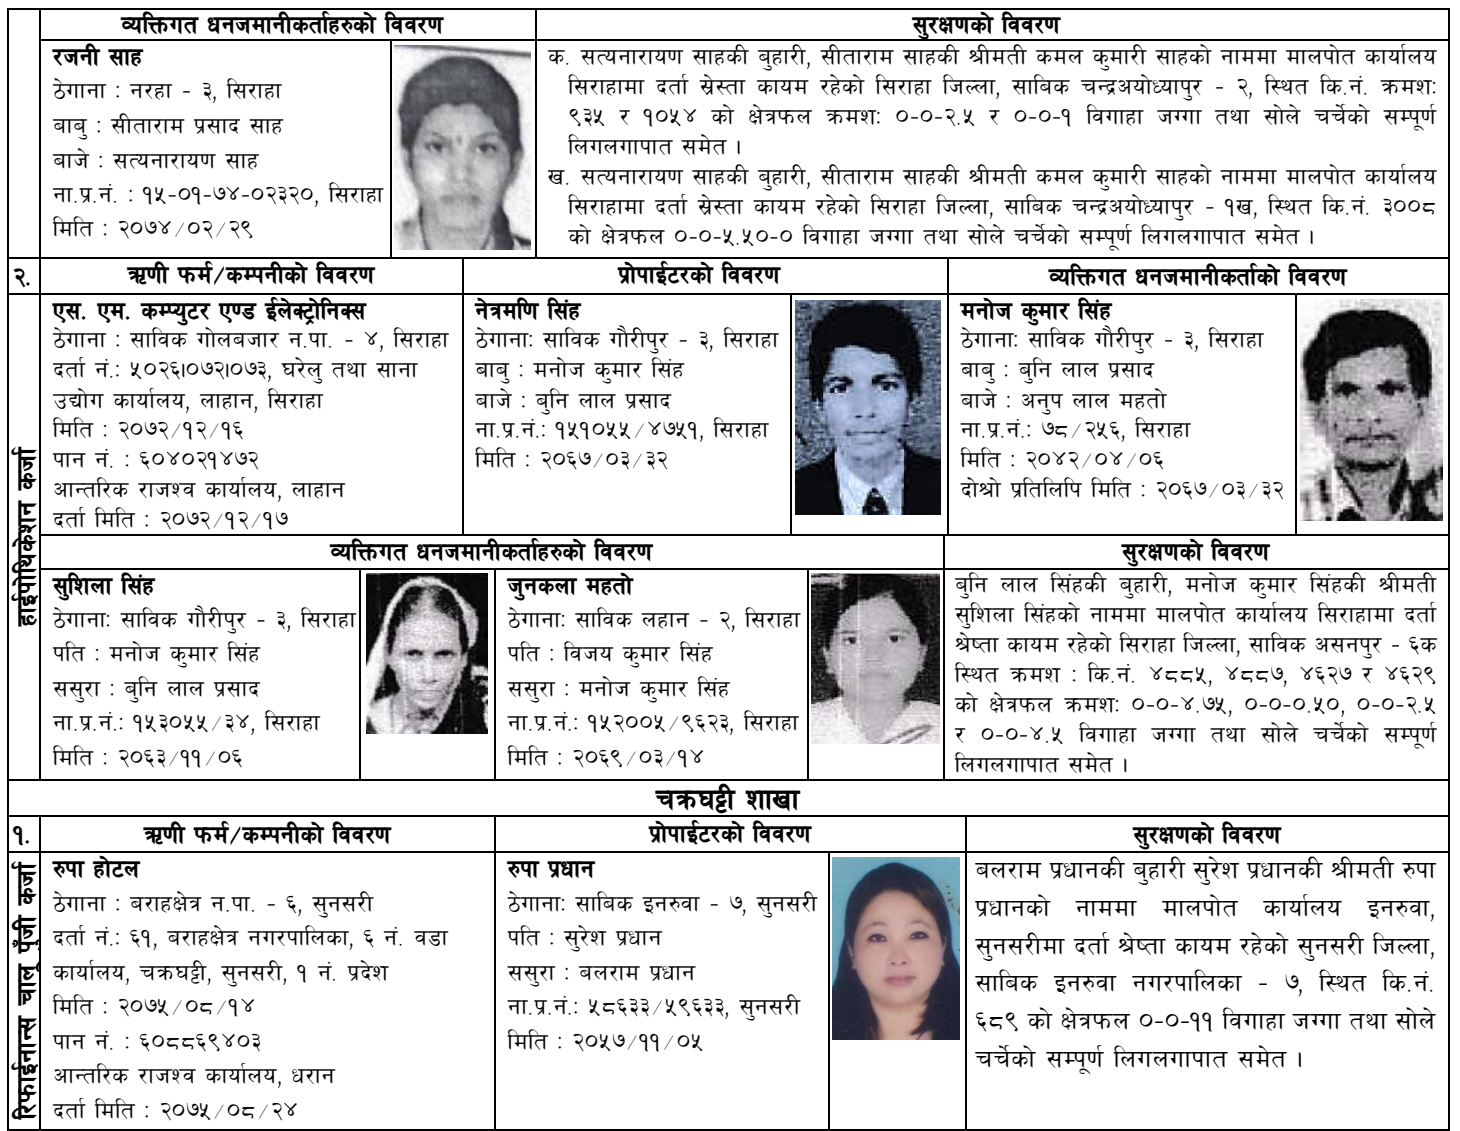 व्यक्तिगत धनजमानीकर्ताहरुको विवरण
सुरक्षणको विवरण
रजनी साह
ठेगाना : नरहा - ३, सिराहा
बाबु : सीताराम प्रसाद साह
बाजे : सत्यनारायण साह
ना.प्र.नं. : १५-०१-७४-०२३२०, सिराहा
मिति : २०७४/०२/२९
क. सत्यनारायण साहकी बुहारी, सीताराम साहकी श्रीमती कमल कुमारी साहको नाममा मालपोत कार्यालय
सिराहामा दर्ता स्रेस्ता कायम रहेको सिराहा जिल्ला, साबिक चन्द्रअयोध्यापुर - २, स्थित कि.नं. क्रमशः
९३५ र १०५४ को क्षेत्रफल क्रमशः ०-०-२.५ र ०-०-१ विगाहा जग्गा तथा सोले चर्चेको सम्पूर्ण
लिगलगापात समेत ।
ख. सत्यनारायण साहकी बुहारी, सीताराम साहकी श्रीमती कमल कुमारी साहको नाममा मालपोत कार्यालय
सिराहामा दर्ता स्रेस्ता कायम रहेको सिराहा जिल्ला, साबिक चन्द्रअयोध्यापुर - १ख, स्थित कि.नं. ३००८
को क्षेत्रफल ०-०-५.५०-० विगाहा जग्गा तथा सोले चर्चेको सम्पूर्ण लिगलगापात समेत ।
२.
ऋणी फर्म/कम्पनीको विवरण
प्रोपाईटरको विवरण
व्यक्तिगत धनजमानीकर्ताको विवरण
हाईपोथिकेशन कर्जा
एस. एम. कम्प्युटर एण्ड ईलेक्ट्रोनिक्स
ठेगाना : साविक गोलबजार न.पा. - ४, सिराहा
दर्ता नं.: ५०२६।०७२।०७३, घरेलु तथा साना
उद्योग कार्यालय, लाहान, सिराहा
मिति : २०७२/१२/१६
पान नं. : ६०४०२१४७२
आन्तरिक राजश्व कार्यालय, लाहान
दर्ता मिति : २०७२/१२/१७
नेत्रमणि सिंह
ठेगानाः साविक गौरीपुर - ३, सिराहा
बाबु : मनोज कुमार सिंह
बाजे : बुनि लाल प्रसाद
ना.प्र.नं.: १५१०५५/४७५१, सिराहा
मिति : २०६७/०३/३२
मनोज कुमार सिंह
ठेगानाः साविक गौरीपुर - ३, सिराहा
बाबु : बुनि लाल प्रसाद
बाजे : अनुप लाल महतो
ना.प्र.नं.: ७८/२५६, सिराहा
मिति : २०४२/०४/०६
दोश्रो प्रतिलिपि मिति : २०६७/०३/३२
व्यक्तिगत धनजमानीकर्ताहरुको विवरण
सुरक्षणको विवरण
सुशिला सिंह
ठेगानाः साविक गौरीपुर - ३, सिराहा
पति : मनोज कुमार सिंह
ससुरा : बुनि लाल प्रसाद
ना.प्र.नं.: १५३०५५/३४, सिराहा
मिति : २०६३/११/०६
जुनकला महतो
ठेगानाः साविक लहान - २, सिराहा
पति : विजय कुमार सिंह
ससुरा : मनोज कुमार सिंह
ना.प्र.नं.: १५२००५/९६२३, सिराहा
मिति : २०६९/०३/१४
बुनि लाल सिंहकी बुहारी, मनोज कुमार सिंहकी श्रीमती
सुशिला सिंहको नाममा मालपोत कार्यालय सिराहामा दर्ता
श्रेष्ता कायम रहेको सिराहा जिल्ला, साविक असनपुर - ६क
स्थित क्रमश : कि.नं. ४८८५, ४८८७, ४६२७ र ४६२९
को क्षेत्रफल क्रमशः ०-०-४.७५, ०-०-०.५०, ०-०-२.५
र ०-०-४.५ विगाहा जग्गा तथा सोले चर्चेको सम्पूर्ण
लिगलगापात समेत ।
चक्रघट्टी शाखा
१.
ऋणी फर्म/कम्पनीको विवरण
प्रोपाईटरको विवरण
सुरक्षणको विवरण
रिफाईनान्स चालू पूँजी कर्जा
रुपा होटल
ठेगाना : बराहक्षेत्र न.पा. - ६, सुनसरी
दर्ता नं.: ६१, बराहक्षेत्र नगरपालिका, ६ नं. वडा
कार्यालय, चक्रघट्टी, सुनसरी, १ नं. प्रदेश
मिति : २०७५/०८/१४
पान नं. : ६०८८६९४०३
आन्तरिक राजश्व कार्यालय, धरान
दर्ता मिति : २०७५/०८/२४
रुपा प्रधान
ठेगानाः साबिक इनरुवा - ७, सुनसरी
पति : सुरेश प्रधान
ससुरा : बलराम प्रधान
ना.प्र.नं.: ५८६३३/५९६३३, सुनसरी
मिति : २०५७/११/०५
बलराम प्रधानकी बुहारी सुरेश प्रधानकी श्रीमती रुपा
प्रधानको नाममा मालपोत कार्यालय इनरुवा,
सुनसरीमा दर्ता श्रेष्ता कायम रहेको सुनसरी जिल्ला,
साबिक इनरुवा नगरपालिका - ७, स्थित कि.नं.
६८९ को क्षेत्रफल ०-०-११ विगाहा जग्गा तथा सोले
चर्चेको सम्पूर्ण लिगलगापात समेत ।